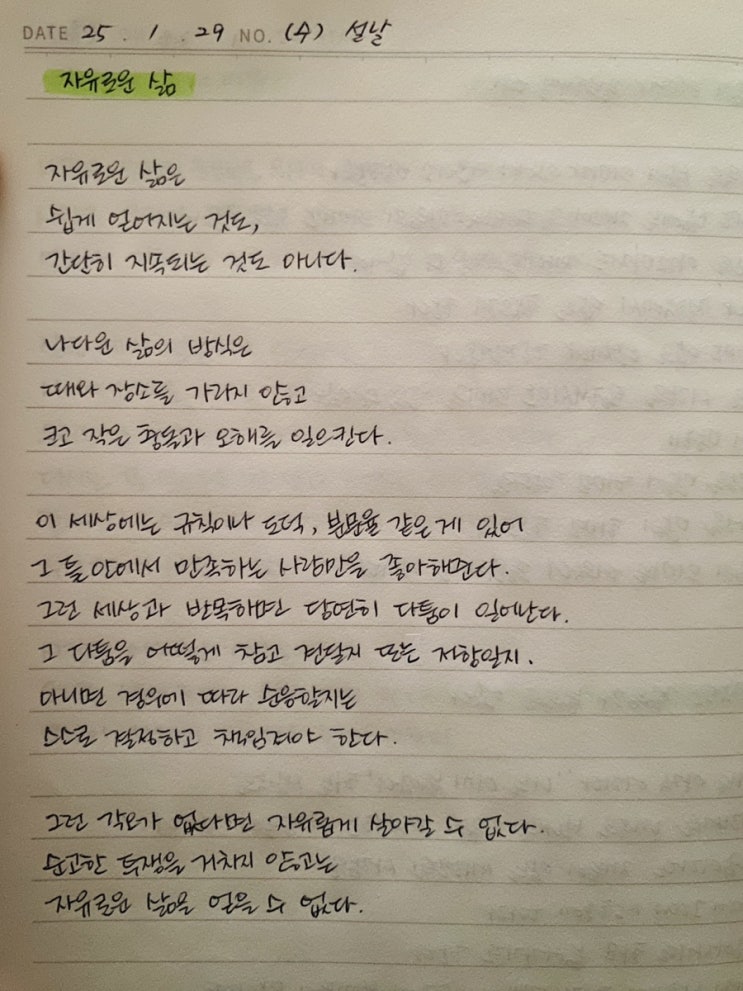 DATE 25 . 1 . 29 NO. (수) 설날
자유로운 삶
자유로운 삶은
쉽게 얻어지는 것도,
간단히 지속되는 것도 아니다.
나다운 삶의 방식은
때와 장소를 가리지 않고
크고 작은 충돌과 오해를 일으킨다.
이 세상에는 규칙이나 도덕, 불문율 같은 게 있어
그 틀 안에서 만족하는 사람만을 좋아해면다.
그런 세상과 반목하면 당연히 다툼이 일어난다.
그 다툼을 어떻게 참고 견딜지 또는 저항일지.
아니면 경우에 따라 순응할지는
스스로 결정하고 책임져야 한다.
그런 각오가 없다면 자유롭게 살아갈 수 없다.
순고한 투쟁을 거치지 않고는
자유로운 삶을 얻을 수 없다.